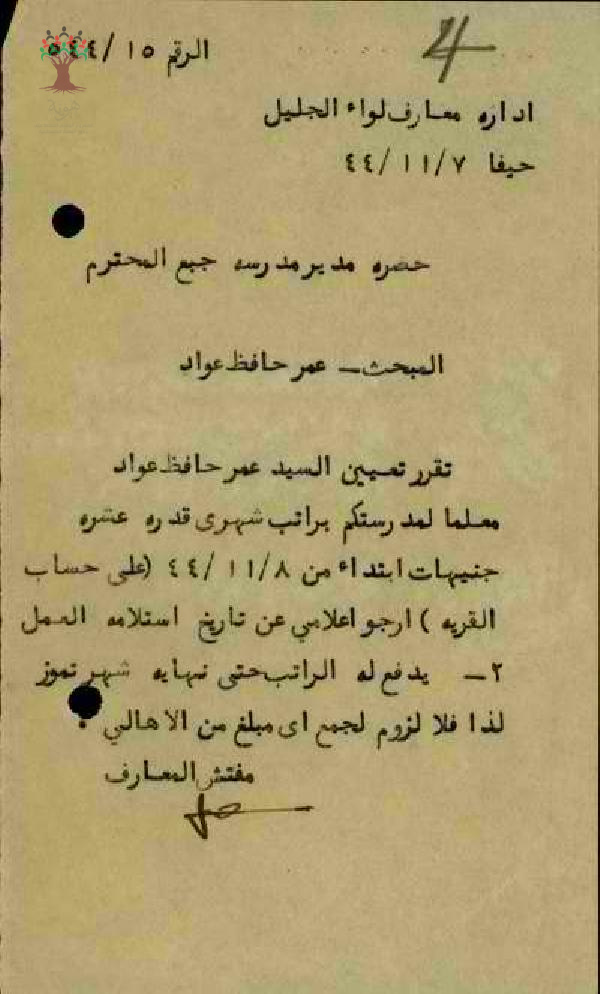 4
الرقم ١٥/ ٥٤٤
اداره معارف لواء الجليل
حيفا ٤٤/١١/٧
حضره مدير مدرسه جبع المحترم
المبحث ــ عمر حافظ عواد
تقرر تعيين السيد عمر حافظ عواد
معلما لمدرستكم براتب شهرى قدره عشره
جنيهات ابتداء من ٤٤/١١/٨ (على حساب
القريه ) ارجو اعلامي عن تاريخ استلامه العمل
٢ــ يدفع له الراتب حتى نهايه شهر تموز
لذا فلا لزوم لجمع اى مبلغ من الاهالي .
مفتش المعارف